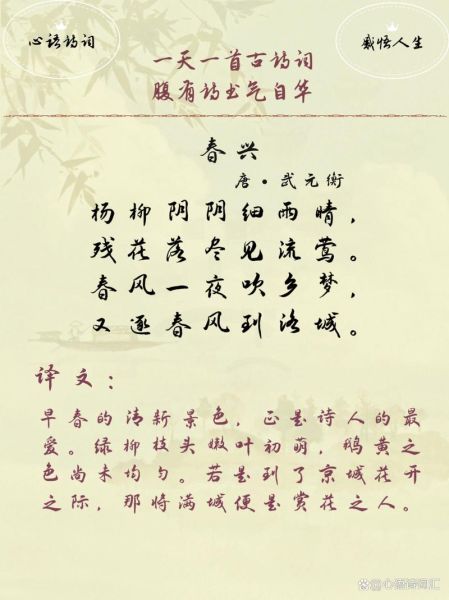 心语诗词
感悟人生
一天一首古诗词
腹有诗书气自华
春兴
唐·武元衡
杨柳阴阴细雨晴，
残花落尽见流莺。
春风一夜吹乡梦，
又逐春风到洛城。
译文：
早春的清新景色，正是诗人的最
爱。绿柳枝头嫩叶初萌，鹅黄之
色尚未均匀。若是到了京城花开
之际，那将满城便是赏花之人。
@心语诗词汇